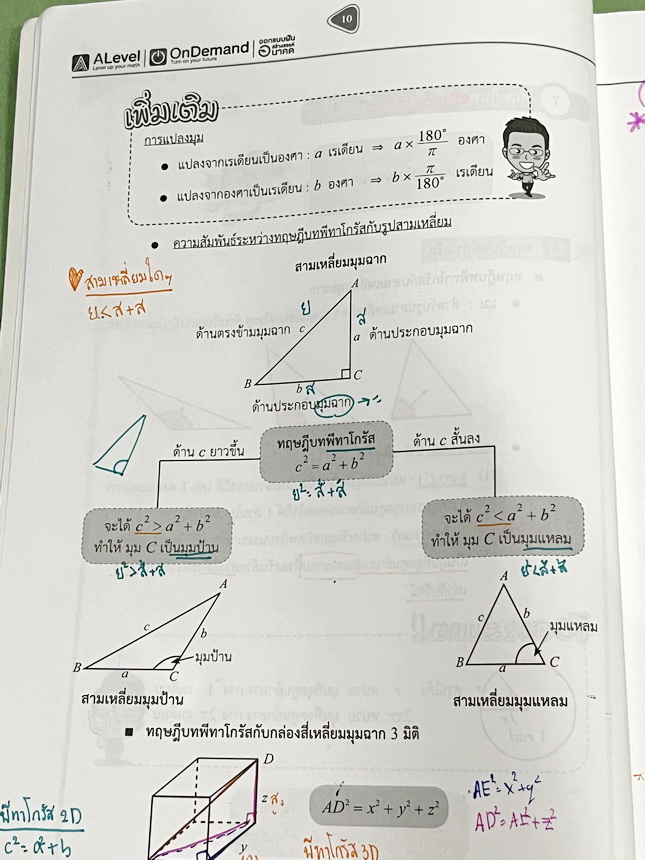 10
ALevel
Level up your math
OnDemand
Turn on your future
ออกแบบฝัน
สร้างสรรค์
อนาคต
เพิ่มเติม
การแปลงมุม
• แปลงจากเรเดียนเป็นองศา : a เรเดียน ⇒ a × 180°/π องศา
• แปลงจากองศาเป็นเรเดียน : b องศา ⇒ b × π/180° เรเดียน
• ความสัมพันธ์ระหว่างทฤษฎีบทพีทาโกรัสกับรูปสามเหลี่ยม
สามเหลี่ยมมุมฉาก
สามเหลี่ยมใดๆ
ย < ส + ส
A
ย
ส
ด้านตรงข้ามมุมฉาก c
a ด้านประกอบมุมฉาก
B
C
b ส
ด้านประกอบมุมฉาก
ด้าน c ยาวขึ้น
ทฤษฎีบทพีทาโกรัส
c² = a² + b²
ด้าน c สั้นลง
ย² = ส² + ส²
จะได้ c² > a² + b²
ทำให้ มุม C เป็นมุมป้าน
จะได้ c² < a² + b²
ทำให้ มุม C เป็นมุมแหลม
ย² > ส² + ส²
ย² < ส² + ส²
A
c
b
มุมป้าน
B
a
C
สามเหลี่ยมมุมป้าน
A
c
b
มุมแหลม
B
a
C
สามเหลี่ยมมุมแหลม
■ ทฤษฎีบทพีทาโกรัสกับกล่องสี่เหลี่ยมมุมฉาก 3 มิติ
D
z สูง
y
AD² = x² + y² + z²
AE² = x² + y²
AD² = AE² + z²
พีทาโกรัส 2D
c² = a² + b
พีทาโกรัส 3D